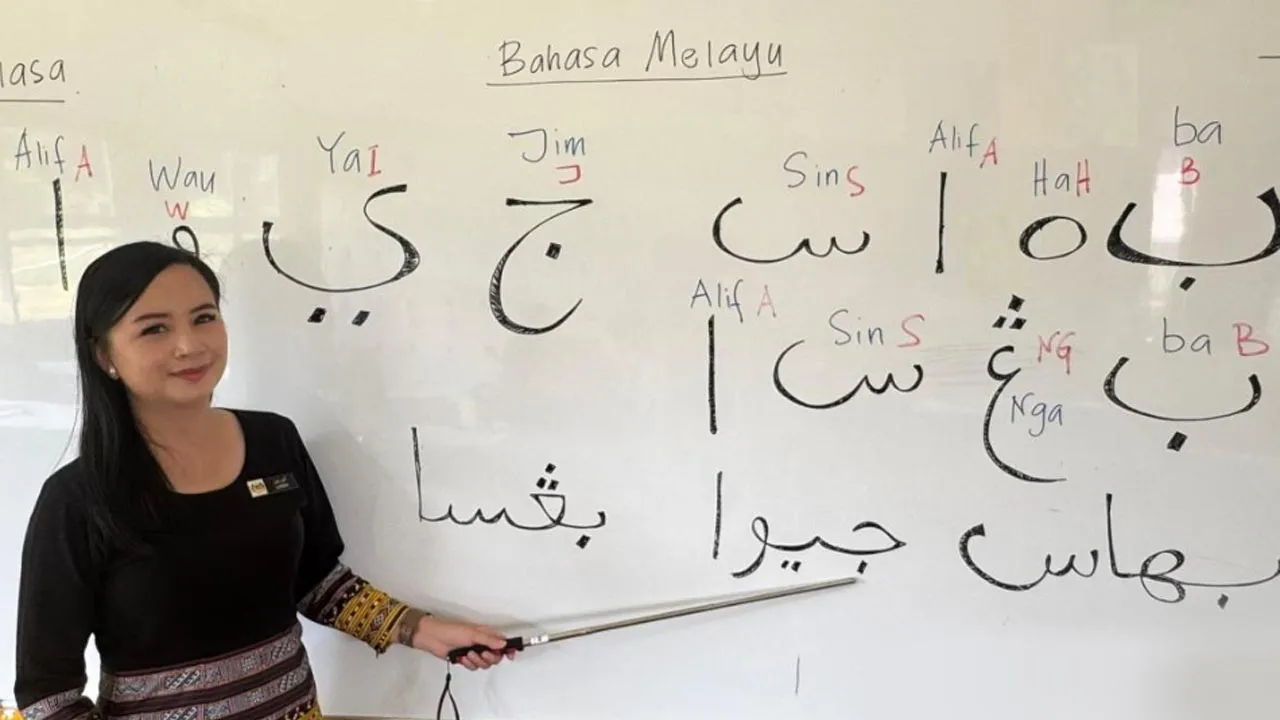 Bahasa Melayu
Alif A Wau W Ya I Jim J Sin S Alif A Ha H ba B
ب ه ا س ج ي و ا
Alif A Sin S NG Nga ba B
ب ڠ س ا
بهاس جيوا بڠسا